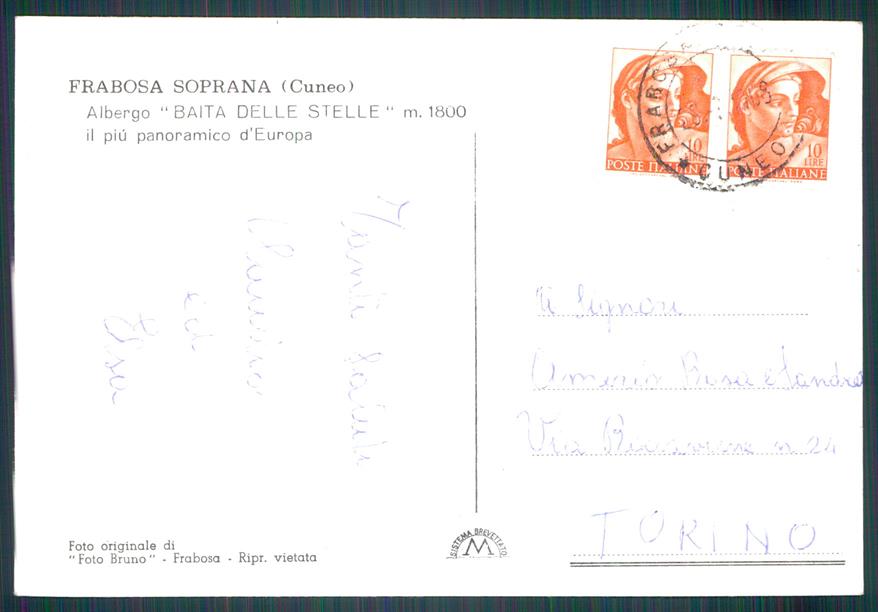 FRABOSA SOPRANA (Cuneo)
Albergo "BAITA DELLE STELLE" m. 1800
il piú panoramico d'Europa
Tanti saluti
ed
Elsa
Foto originale di
"Foto Bruno" - Frabosa - Ripr. vietata
SISTEMA BREVETTATO
M
10
LIRE
POSTE ITALIANE
10
LIRE
POSTE ITALIANE
FRABOSA
CUNEO
Signori
Rosa e Sandro
Via n 24
TORINO